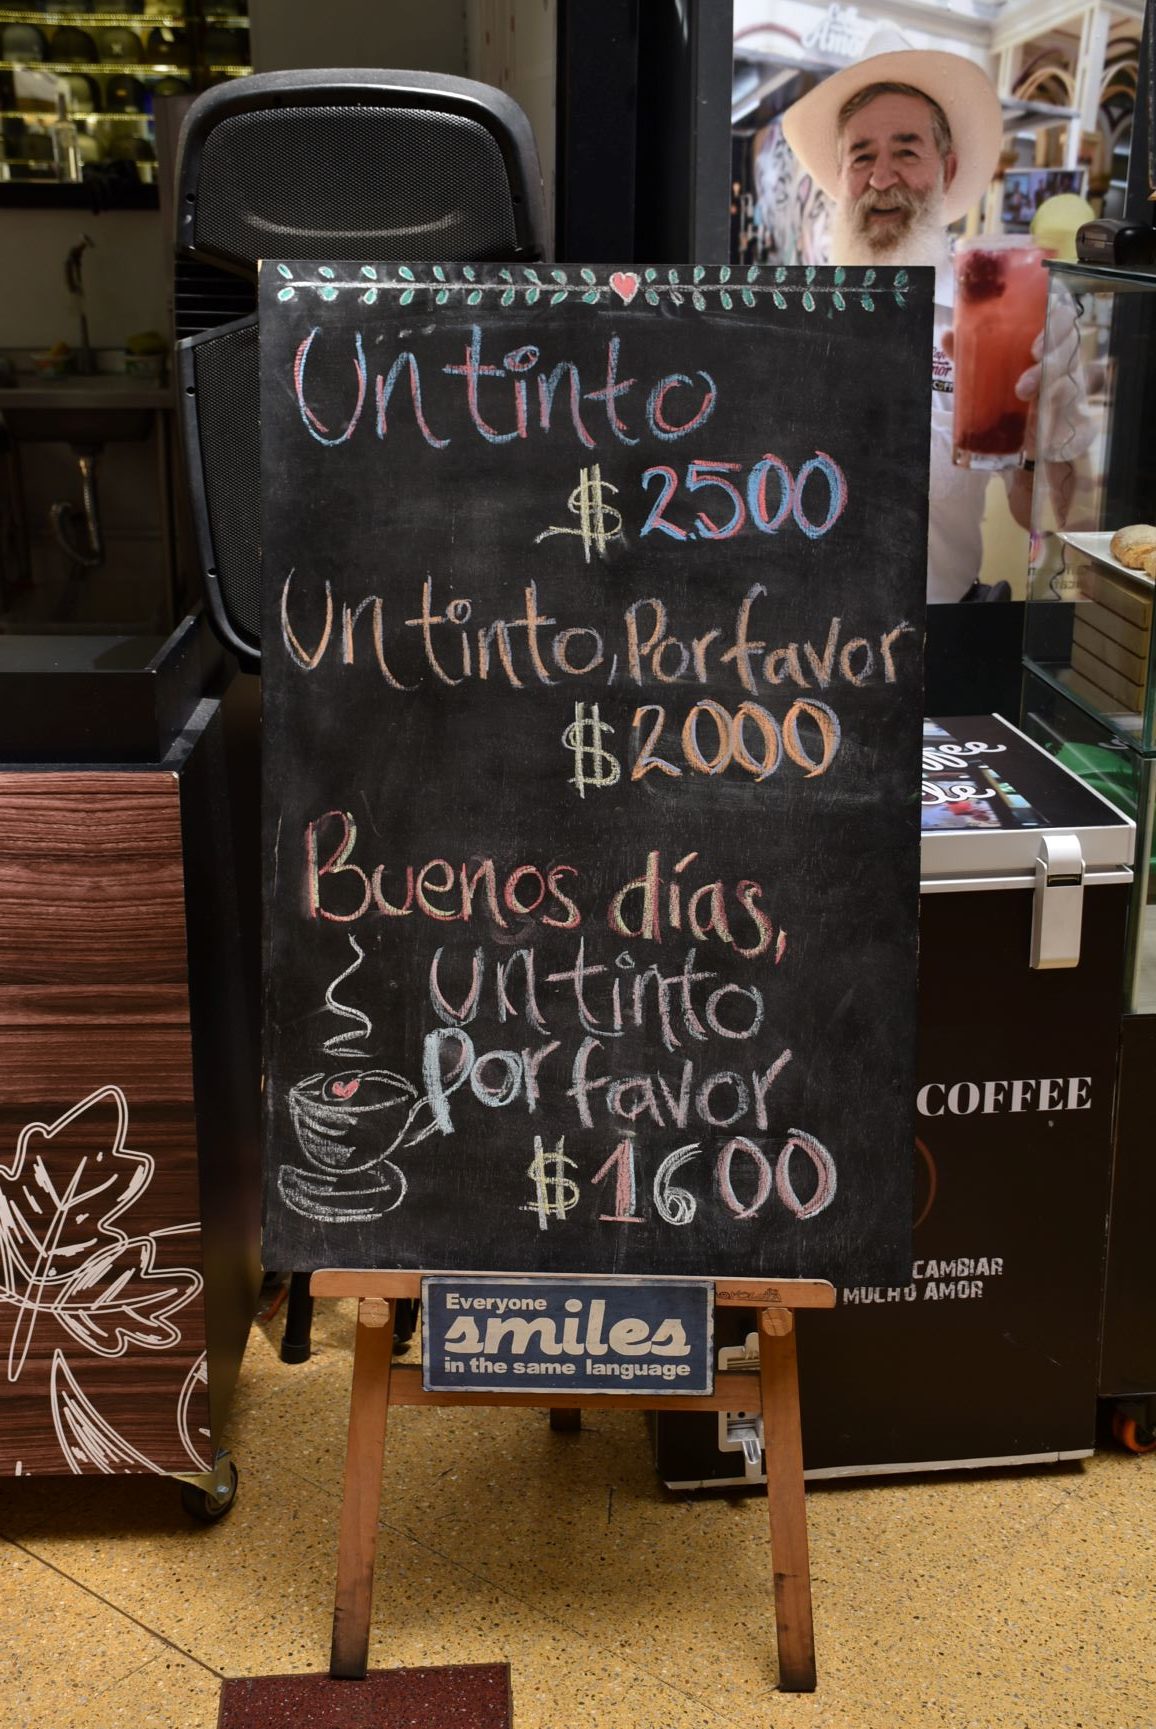 Un tinto
$ 2.500
Un tinto, Por favor
$ 2000
Buenos días,
un tinto
Por favor
$ 1600
Everyone
smiles
in the same language
COFFEE
CAMBIAR
MUCHO AMOR